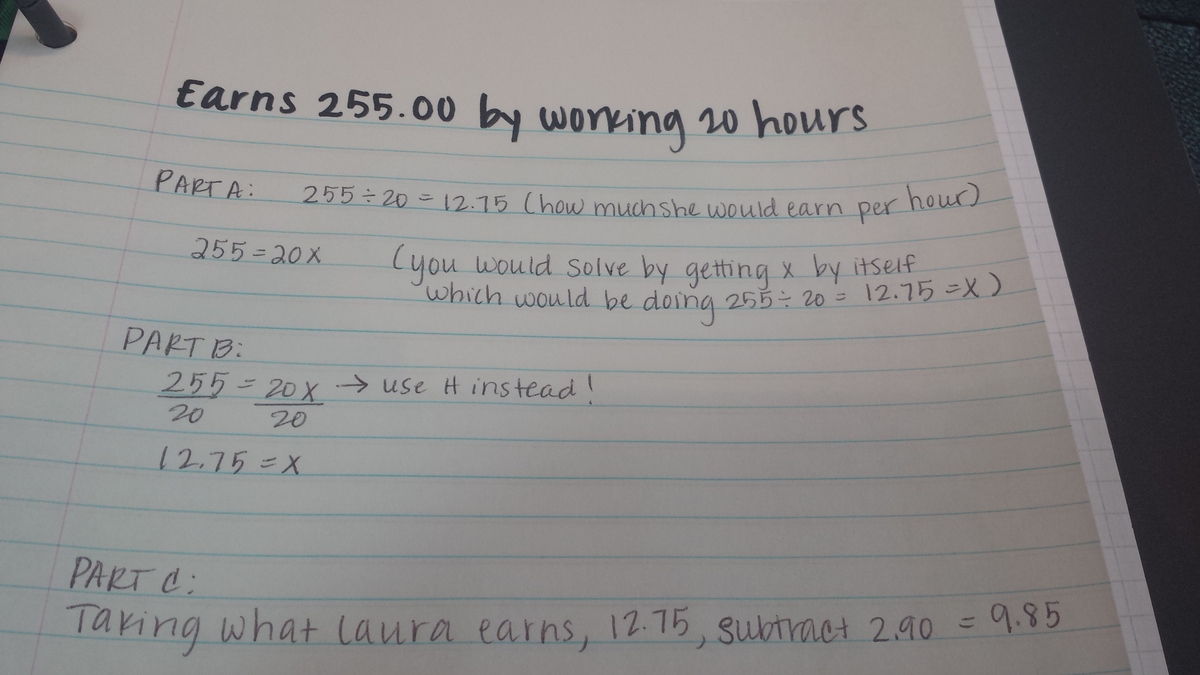 Earns 255.00 by working 20 hours
PART A: 255 ÷ 20 = 12.75 (how much she would earn per hour)
255 = 20x (you would solve by getting x by itself
which would be doing 255 ÷ 20 = 12.75 = x)
PART B:
255 = 20x → use H instead!
20 20
12.75 = x
PART C:
Taking what Laura earns, 12.75, subtract 2.90 = 9.85